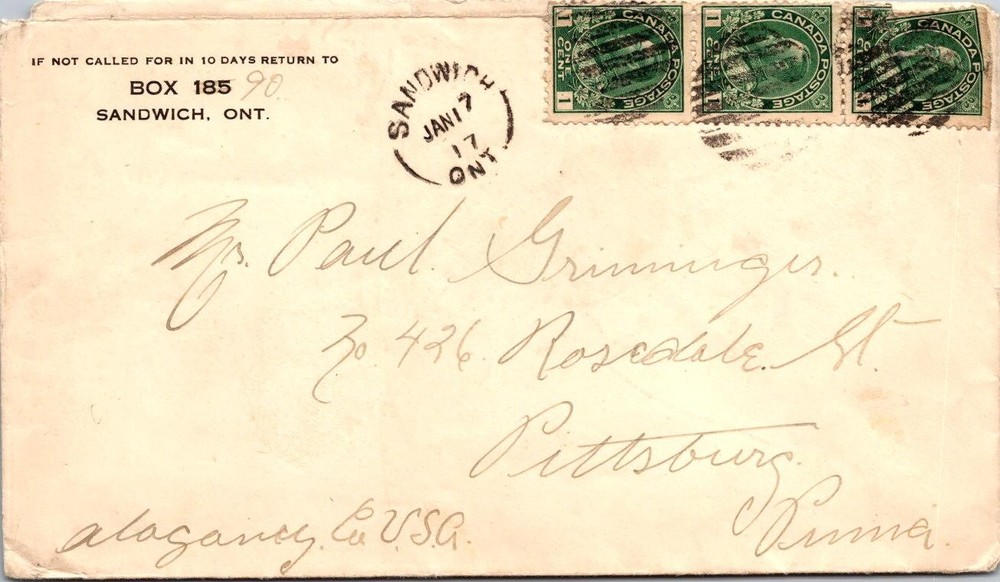 IF NOT CALLED FOR IN 10 DAYS RETURN TO
BOX 185 90
SANDWICH, ONT.
SANDWICH
JAN 17
17
ONT.
1 CANADA POSTAGE ONE CENT 1
1 CANADA POSTAGE ONE CENT 1
1 CANADA POSTAGE ONE CENT 1
Mr. Paul. Grininger.
No 426. Rosedale. St.
Pittsburg.
Penna.
alagancy. Co U.S.A.